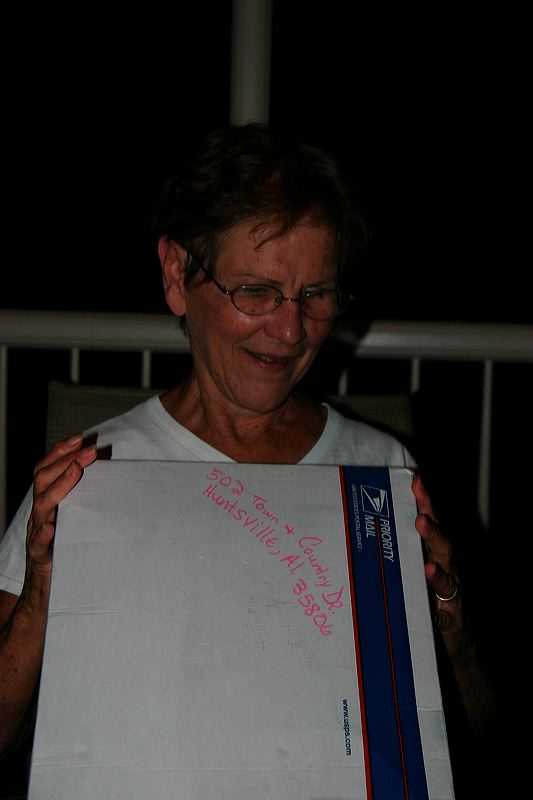 502 Town & Country DR.
Huntsville, Al 35806
PRIORITY
MAIL
UNITED STATES POSTAL SERVICE
www.usps.com